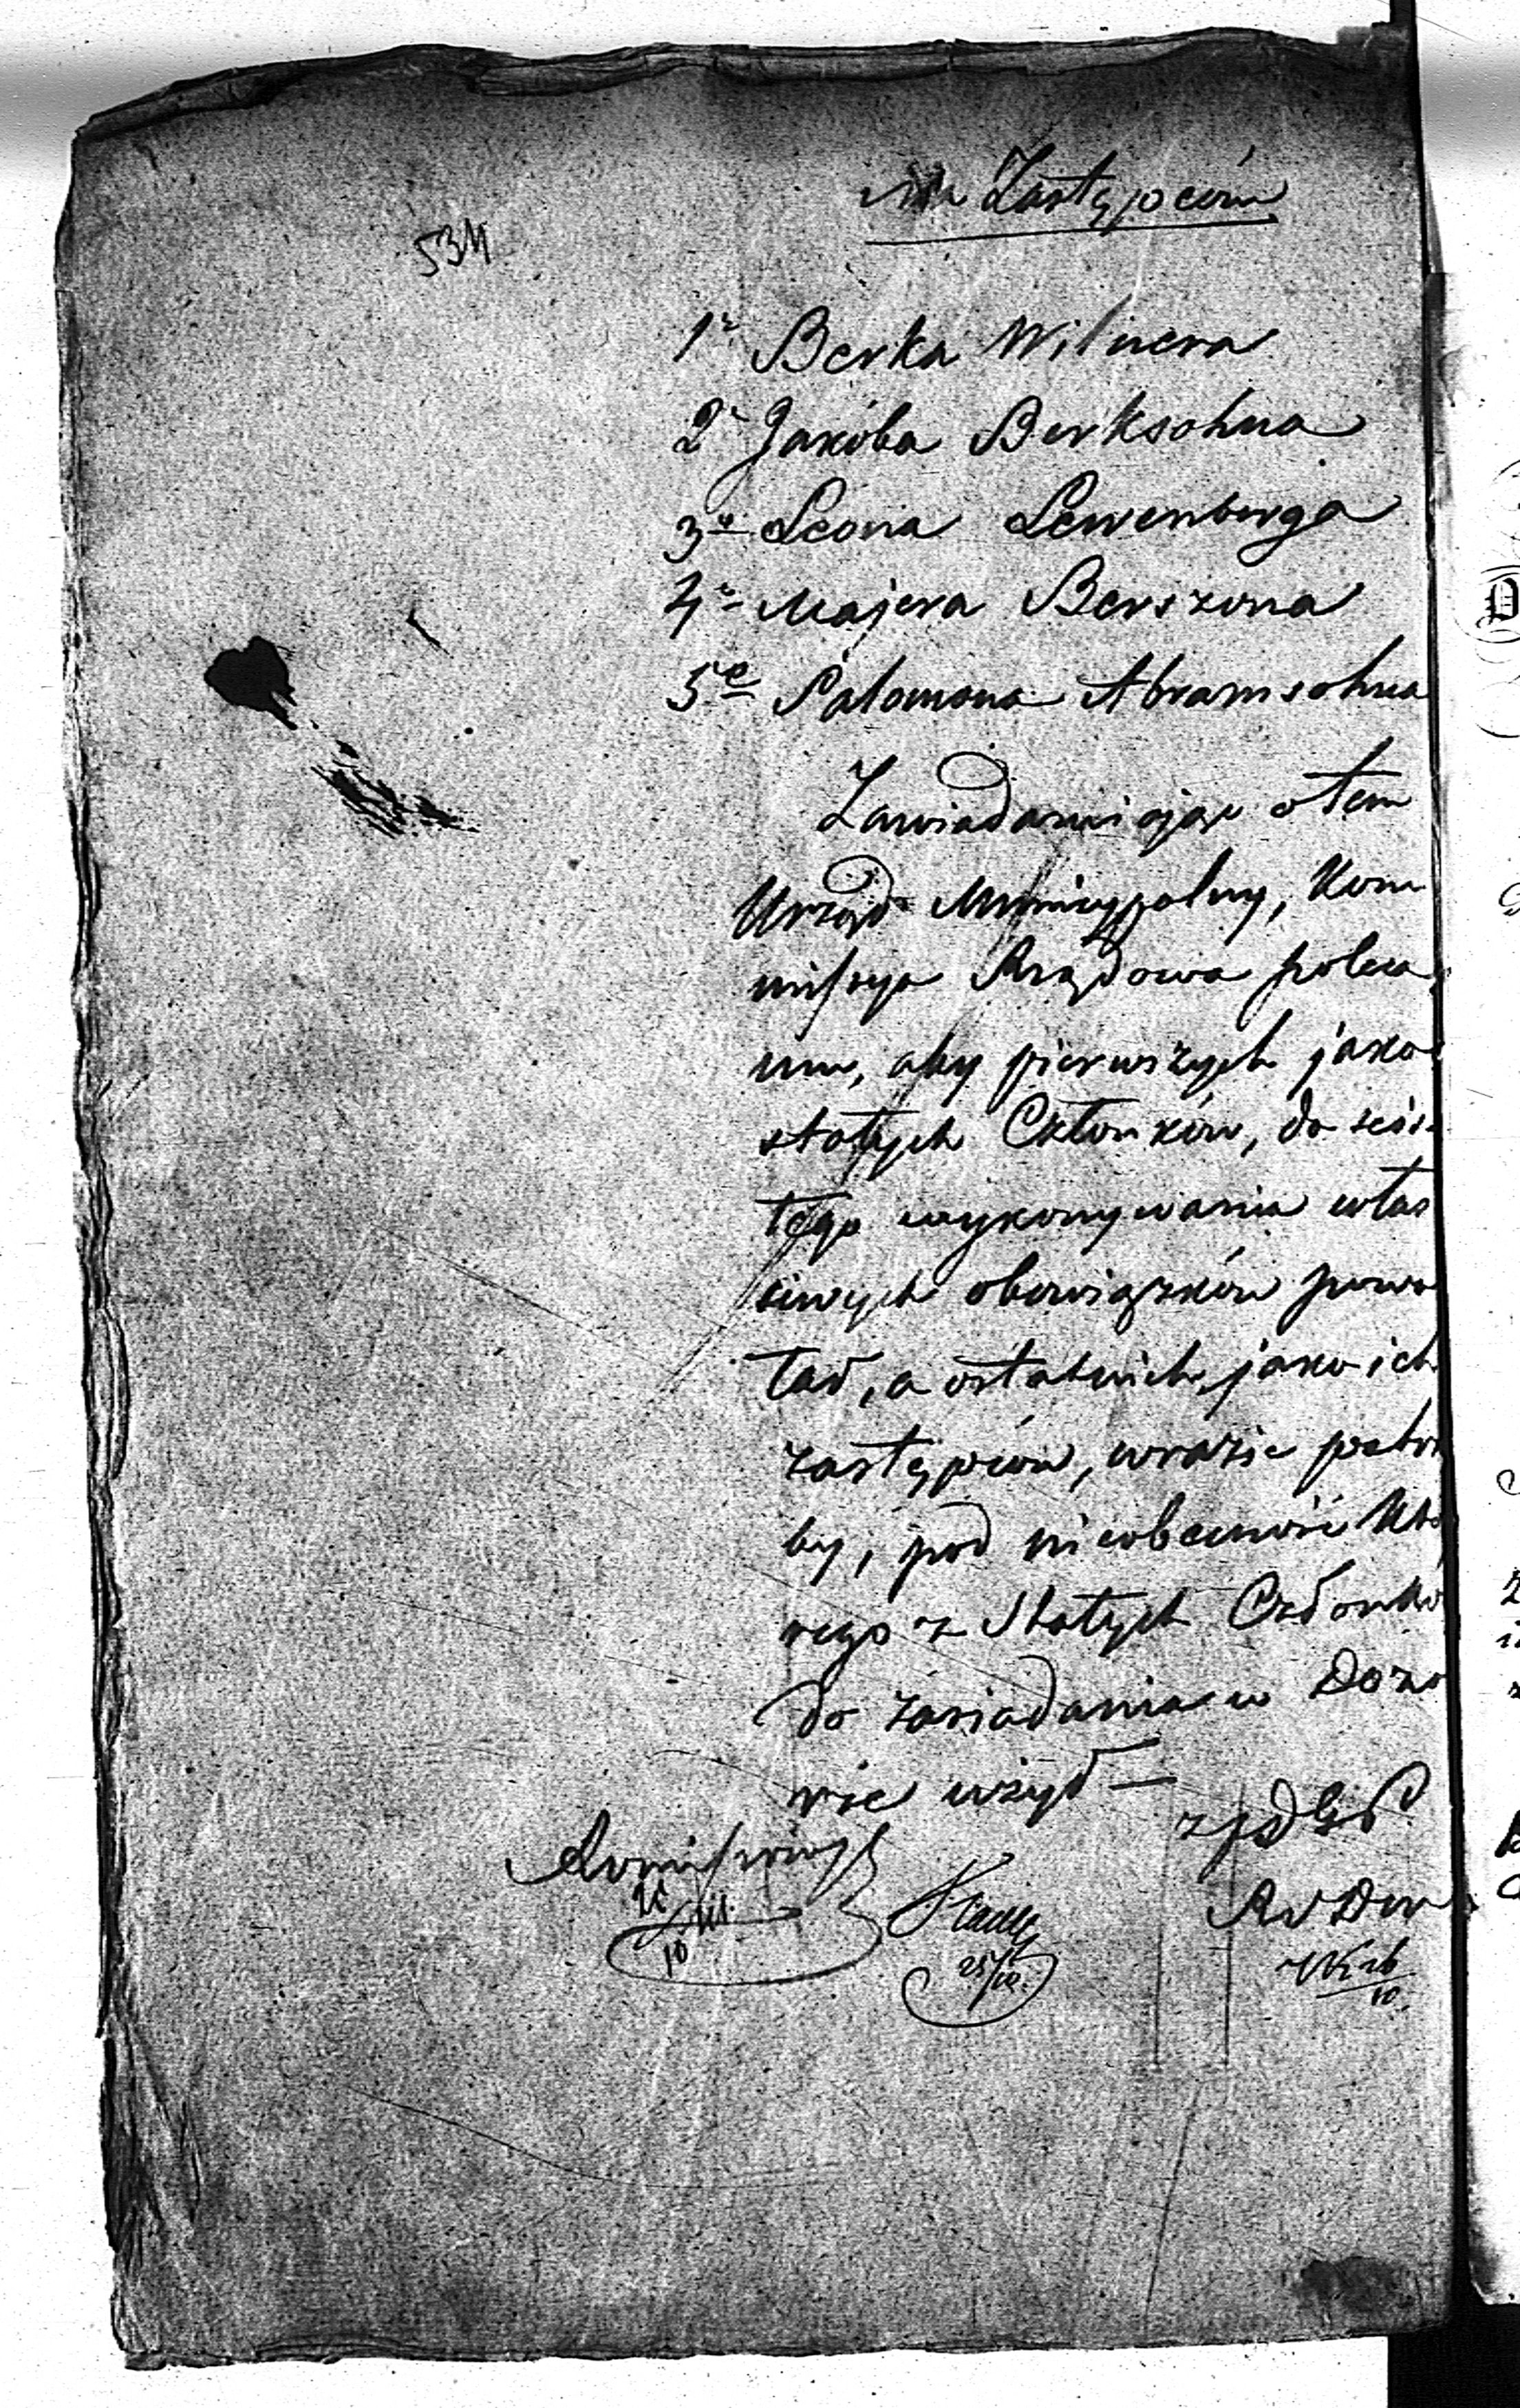 na Zastępców
534
1e Berka Wilnera
2e Jakóba Berksohna
3e Leona Lewenberga
4e Majera Berszona
5e Salomona Abramsohna
Zawiadamiając o tem
Urząd Municypalny, Kom
missya Rządowa poleca
mu, aby pierwszych jako
stałych Członków, do ścis
łego wykonywania właś
ciwych obowiązków powo
łał, a ostatnich jako ich
zastępców, w razie potrze
by, pod nieobecność któ
rego z Stałych Członków
do zasiadania w Dozo
rze użył —
25/10
26/10